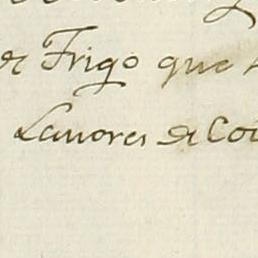 de Trigo que
Lavores de Co